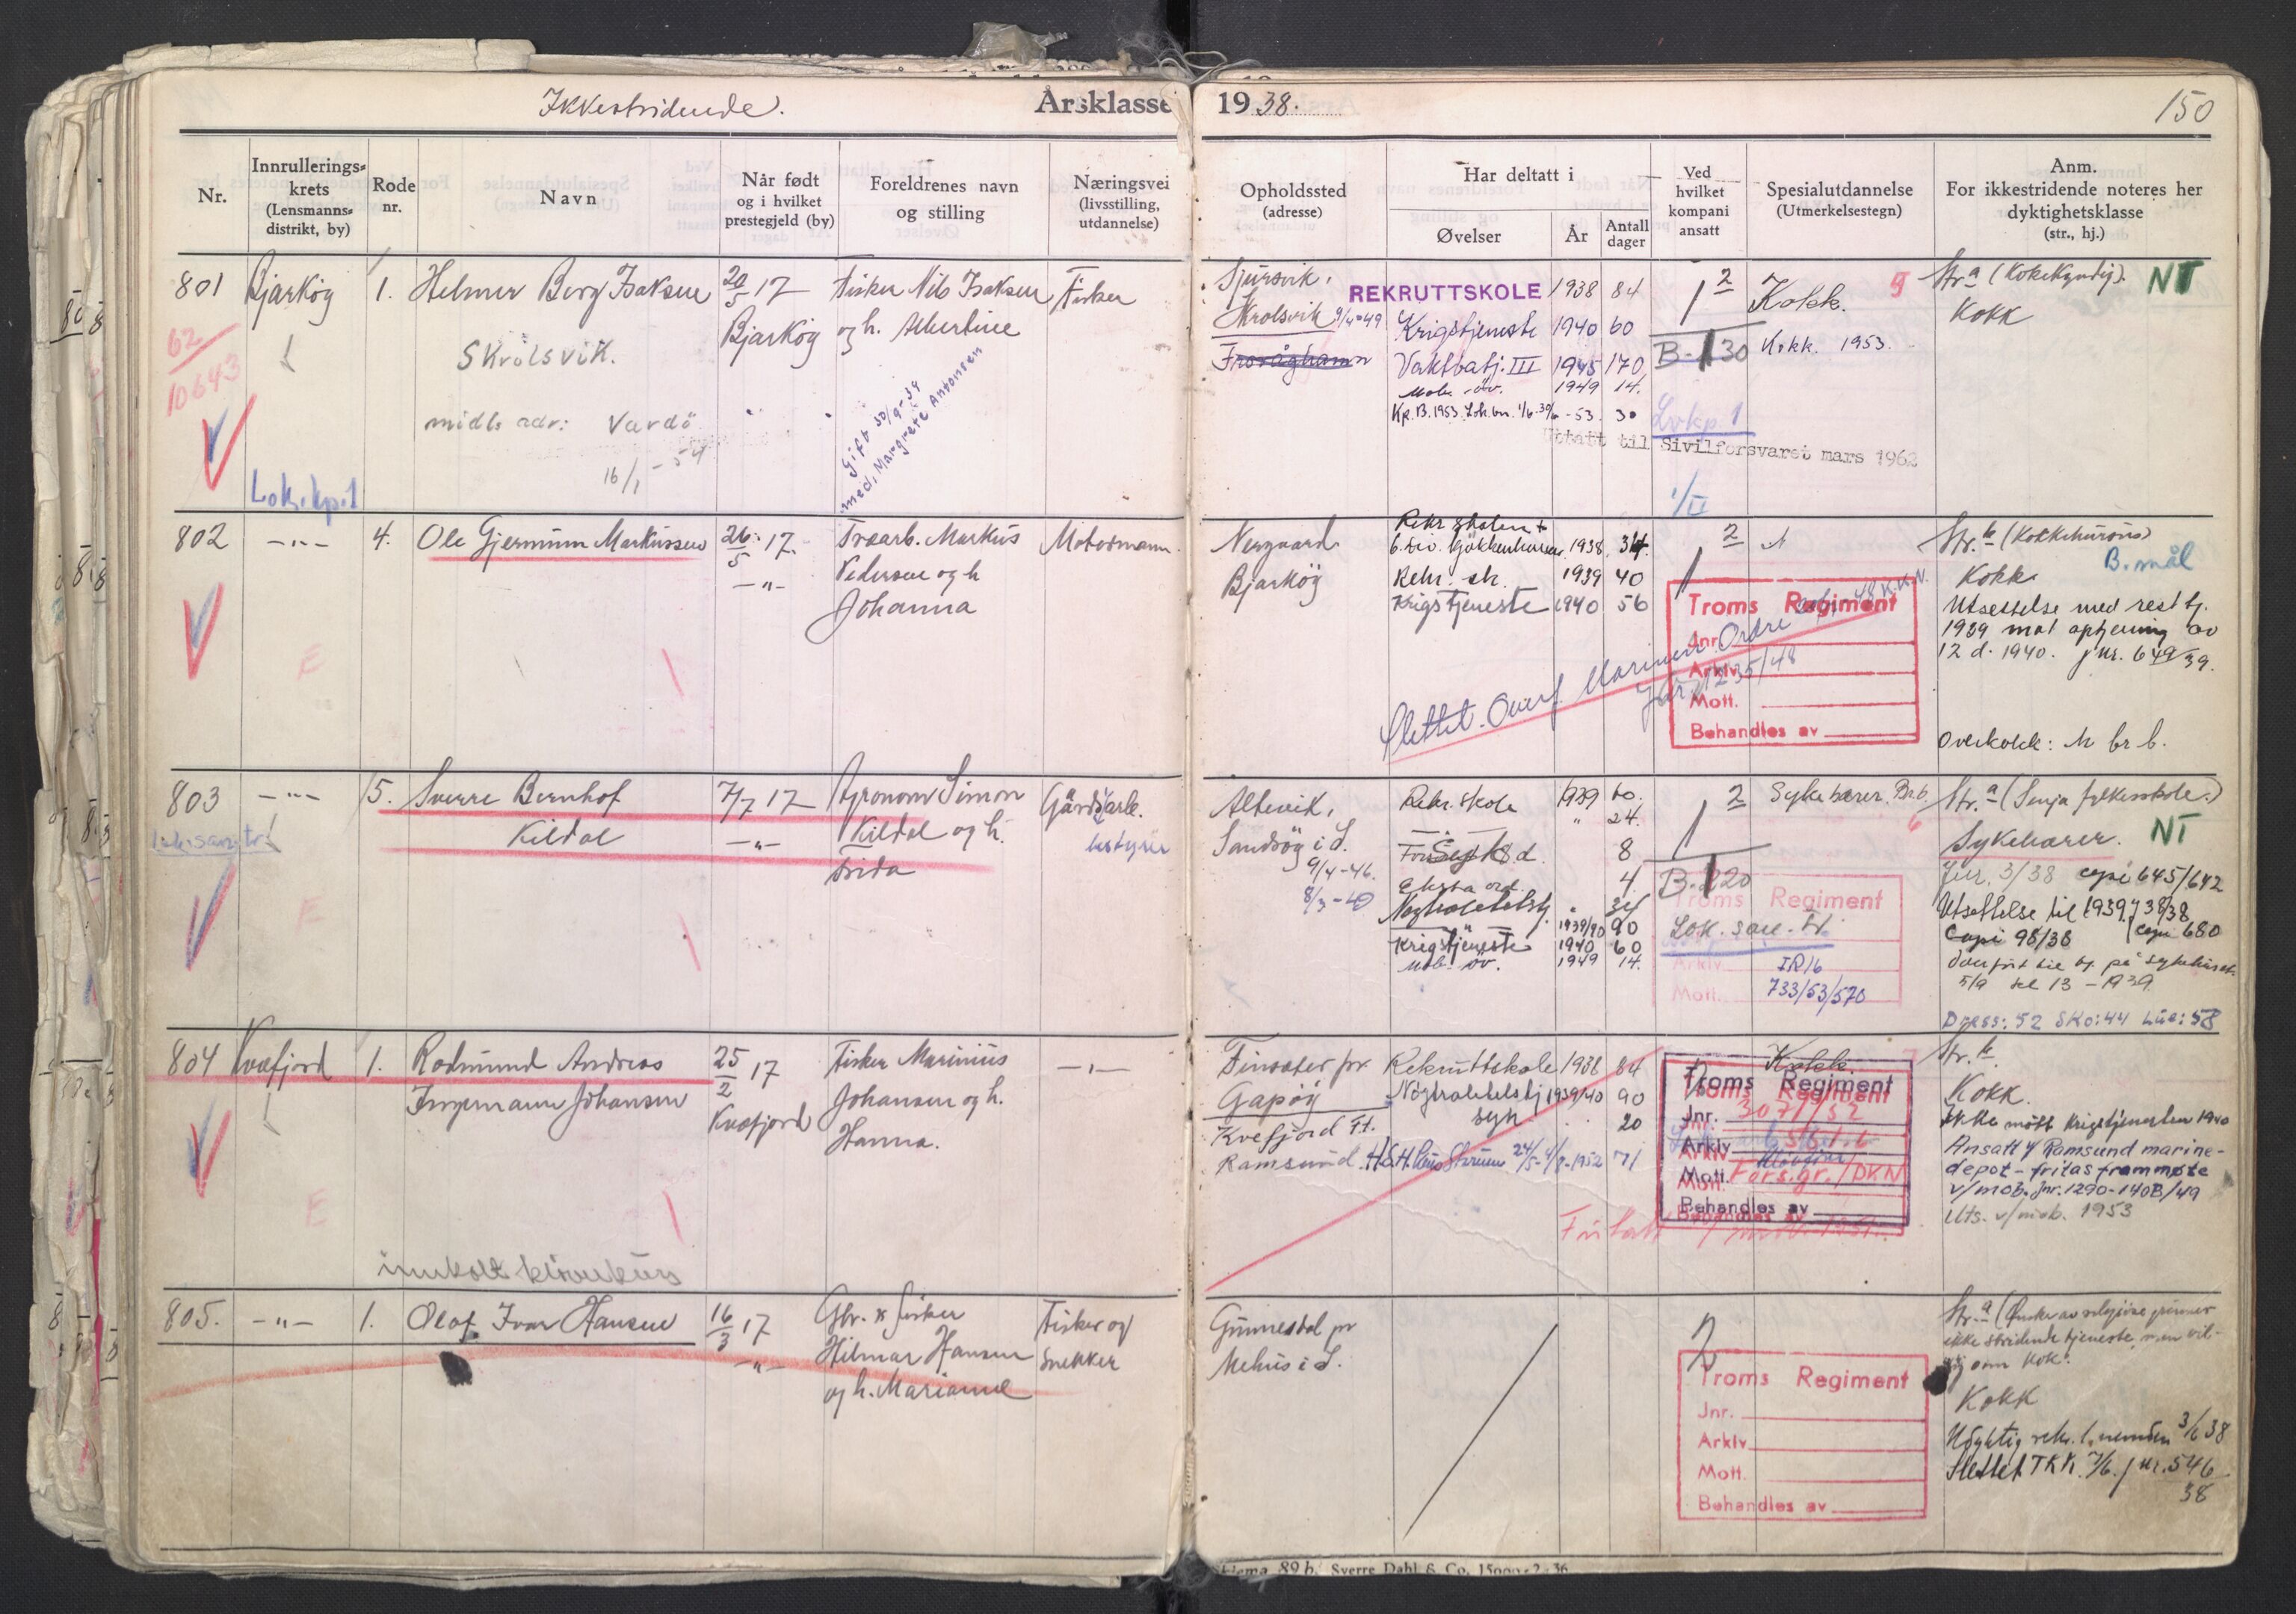 Ikkestridende. Årsklasse 1938. 150
Nr. Innrullerings-krets (Lensmanns-distrikt, by) Rode nr. Navn Når født og i hvilket prestegjeld (by) Foreldrenes navn og stilling Næringsvei (livsstilling, utdannelse) Opholdssted (adresse) Har deltatt i Øvelser År Antall dager Ved hvilket kompani ansatt Spesialutdannelse (Utmerkelsestegn) Anm. For ikkestridende noteres her dyktighetsklasse (str., hj.)
801 Bjarköy 1. Helmer Berg Isaksen 20/5 17 Fisker Nils Isaksen Fisker
Bjarköy og h. Albertine
62
10643
Skrolsvik.
midl. adr: Vardö
16/1-54
Gift 30/9-39
med, Margrete Antonsen
Lok.kp.1
Sjursvik, REKRUTTSKOLE 1938 84 2 Kokk. 9 Str. a (Kokekyndig). NT
Skrolsvik 9/4-49 Krigstjeneste 1940 60 1 Kokk
Vaktbatj. III 1945 170 B-130 Kokk. 1953.
Mob. öv. 1949 14.
Kp.B.1953 Lok.bn. 1/6-30/6-53. 30 Lokp 1
Uttatt til Sivilforsvaret mars 1962
1/II
802 -"- 4. Ole Gjermunn Markussen 26/5 17. Trearb. Markus Motormann
-"- Pedersen og h.
Johanna
E
Nergaard Rekr.skolen + 2 Str. b (Kokkekursus)
6. div. 1938 34. B. mål
Bjarköy Rekr. sk. 1939 40 1 Kokk
Krigstjeneste 1940 56 Utsettelse med rest tj.
1939 mot optjening av
12 d. 1940. jnr. 649/39.
Slettet. Overf. Marinen. Ordre
Jnr. 1235/48
Troms Regiment
Jnr.
Arkiv
Mott.
Behandles av
Overkokk: M br b.
803 -"- 5. Sverre Bernhof 7/7 17 Agronom Simon Gårdsarb.
Kildal -"- Kildal og h. bestyrer
Frida
Lok.san.tr.
E
Altevik, Rekr. skole 1939 60. 2 Sykebærer. Str. a (Senja fylkesskole.)
" 24.
Sandsöy i S. 8 1 Sykebærer. NT
9/4-46. Ekstra ord. 4. B-120 Jnr. 3/38 copi 645/642
8/3-40 Nøytralitetstj. 34 Utsettelse til 1939 j 38/38
1939/40 90 Lok. san. tr. Copi 98/38 copi 680
Krigstjeneste 1940 60
Mob. öv. 1949 14. IR16
733/53/570
Troms Regiment
Arkiv
Mott.
Dress: 52 Sko: 44 Lue: 58
804 Kvæfjord 1. Rodmund Andreas 25/2 17 Fisker Marinius -"-
Ingemann Johansen Kvæfjord Johansen og h.
Hanna.
E
innkalt
Finsæter pr Rekruttskole 1938 84 Kokk. Str. b
Gapöy Nöytralitetstj 1939/40 90 Kokk.
Kvefjord syk 20 Ikke mött krigstjenesten 1940
Ramsund. 24/5-4/8-1952 71 Ansatt v/ Ramsund marine-
depot - fritas frammøte
v/mob. jnr. 1290-140B/49
Uts. v/mob. 1953
Troms Regiment
Jnr. 3071/52
Arkiv
Mott. Fors.gr./DKN
Behandles av
805. -"- 1. Olaf Ivar Hansen 16/3 17 Gbr. & fisker Fisker og
-"- Hilmar Hansen snekker
og h. Marianne
Gunnesdal pr 2 Str. a (Ønsker av religiøse grunner
Melnis i S. ikke stridende tjeneste, men vil-
lig som kok.
Kokk
Udyktig rekr. l. nemden 3/6 38
Slettet TKK. 7/6. jnr. 546
38
Troms Regiment
Jnr.
Arkiv
Mott.
Behandles av
89 b. Sverre Dahl & Co. 15000-2-36